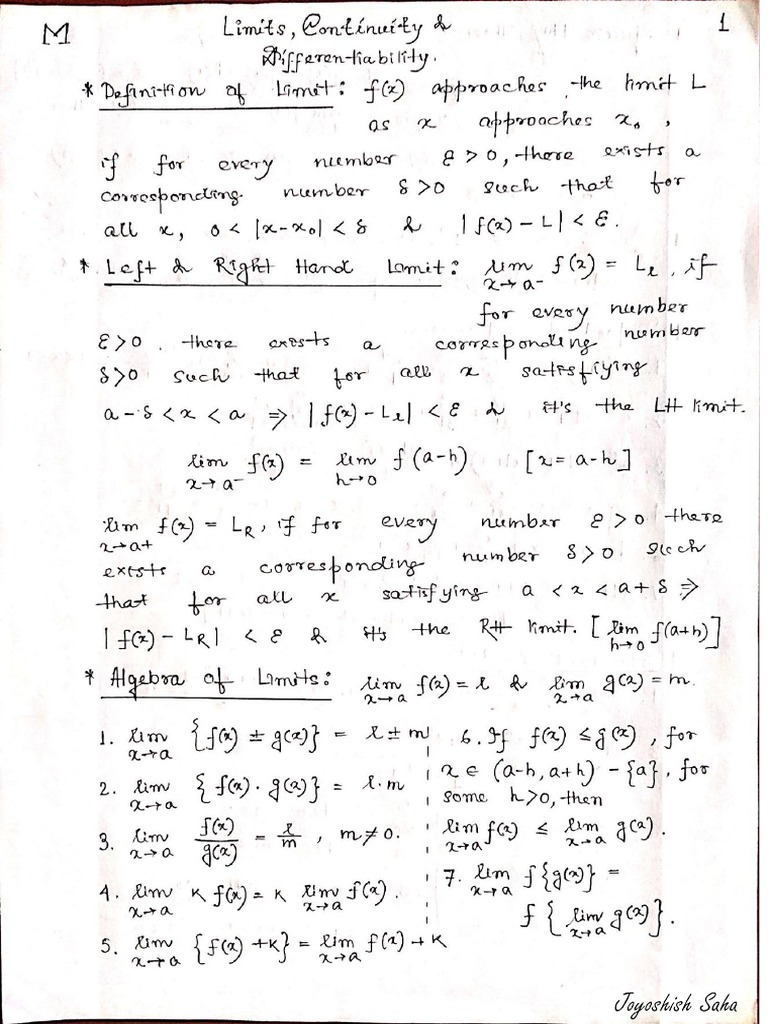 M
Limits, Continuity &
Differentiability.
1
* Definition of Limit: f(x) approaches the limit L
as x approaches x₀,
if for every number ε>0, there exists a
corresponding number δ>0 such that for
all x, 0<|x-x₀|<δ & |f(x)-L|<ε.
* Left & Right Hand Limit: lim x→a⁻ f(x) = Lₗ, if
for every number
ε>0. there exists a corresponding number
δ>0 such that for all x satisfying
a-δ<x<a ⇒ |f(x)-Lₗ|<ε & it's the LH limit.
lim x→a⁻ f(x) = lim h→0 f(a-h) [x=a-h]
lim x→a+ f(x) = L_R, if for every number ε>0 there
exists a corresponding number δ>0 such
that for all x satisfying a<x<a+δ ⇒
|f(x)-L_R| <ε & it's the RH limit. [lim h→0 f(a+h)]
* Algebra of Limits: lim x→a f(x)=l & lim x→a g(x)=m.
1. lim x→a {f(x) ± g(x)} = l±m
2. lim x→a {f(x)·g(x)} = l·m
3. lim x→a f(x)/g(x) = l/m, m≠0.
4. lim x→a K f(x) = K lim x→a f(x).
5. lim x→a {f(x)+K} = lim x→a f(x)+K
6. If f(x) ≤ g(x), for
x ∈ (a-h, a+h) - {a}, for
some h>0, then
lim x→a f(x) ≤ lim x→a g(x).
7. lim x→a f{g(x)} =
f{lim x→a g(x)}.
Joyoshish Saha